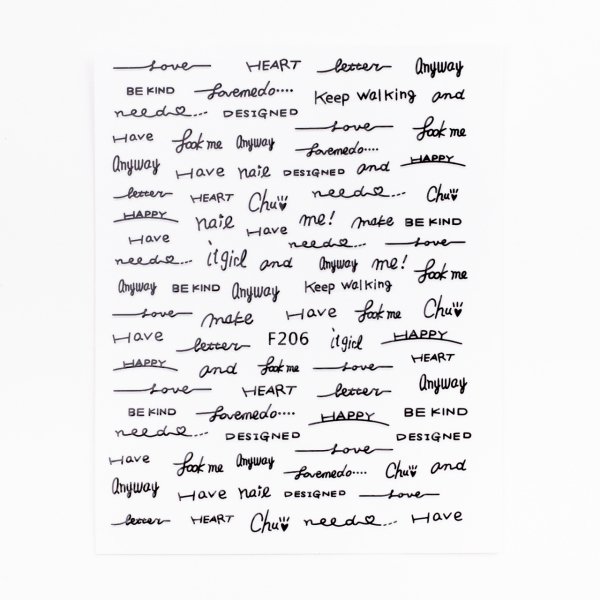 Love HEART letter Anyway
BE KIND Lovemedo.... Keep walking and
need... DESIGNED
Have look me Anyway Love look me
Lovemedo....
Anyway Have nail DESIGNED and HAPPY
letter HEART Chu need... Chu
HAPPY nail Have me! make BE KIND
Have need... Love
need... it girl and Anyway me! look me
Anyway BE KIND Anyway Keep walking
Love make Have look me Chu
Have letter F206 it girl HAPPY
HAPPY and look me Love HEART
Love HEART letter Anyway
BE KIND Lovemedo.... HAPPY BE KIND
need... DESIGNED DESIGNED
Love
Have look me Anyway Lovemedo.... Chu and
Anyway Have nail DESIGNED Love
letter HEART Chu need... Have